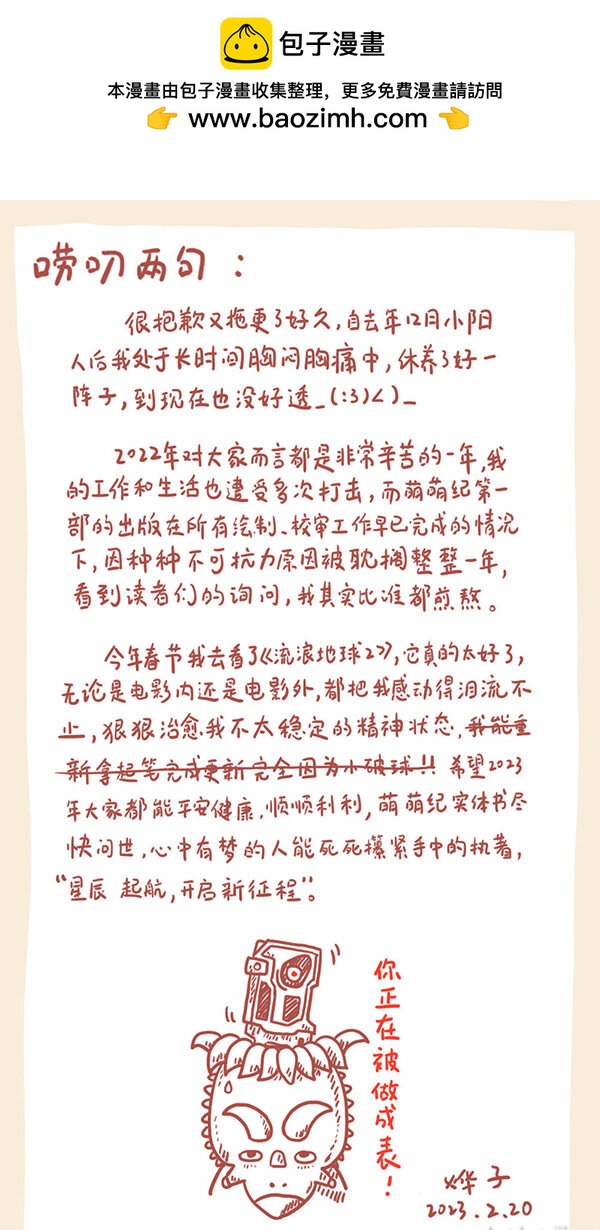 包子漫畫
本漫畫由包子漫畫收集整理，更多免費漫畫請訪問
👉 www.baozimh.com 👈
唠叨两句：
很抱歉又拖更了好久，自去年12月小阳
人后我处于长时间胸闷胸痛中，休养了好一
阵子，到现在也没好透_(:3)∠)_
2022年对大家而言都是非常辛苦的一年，我
的工作和生活也遭受多次打击，而萌萌纪第一
部的出版在所有绘制、校审工作早已完成的情况
下，因种种不可抗力原因被耽搁整整一年，
看到读者们的询问，我其实比谁都煎熬。
今年春节我去看了《流浪地球2》，它真的太好了，
无论是电影内还是电影外，都把我感动得泪流不
止，狠狠治愈我不太稳定的精神状态，我能重
新拿起笔完成更新完全因为小破球！！希望2023
年大家都能平安健康，顺顺利利，萌萌纪实体书尽
快问世，心中有梦的人能死死攥紧手中的执着，
“星辰 起航，开启新征程”。
你正在被做成表！
烨子
2023.2.20